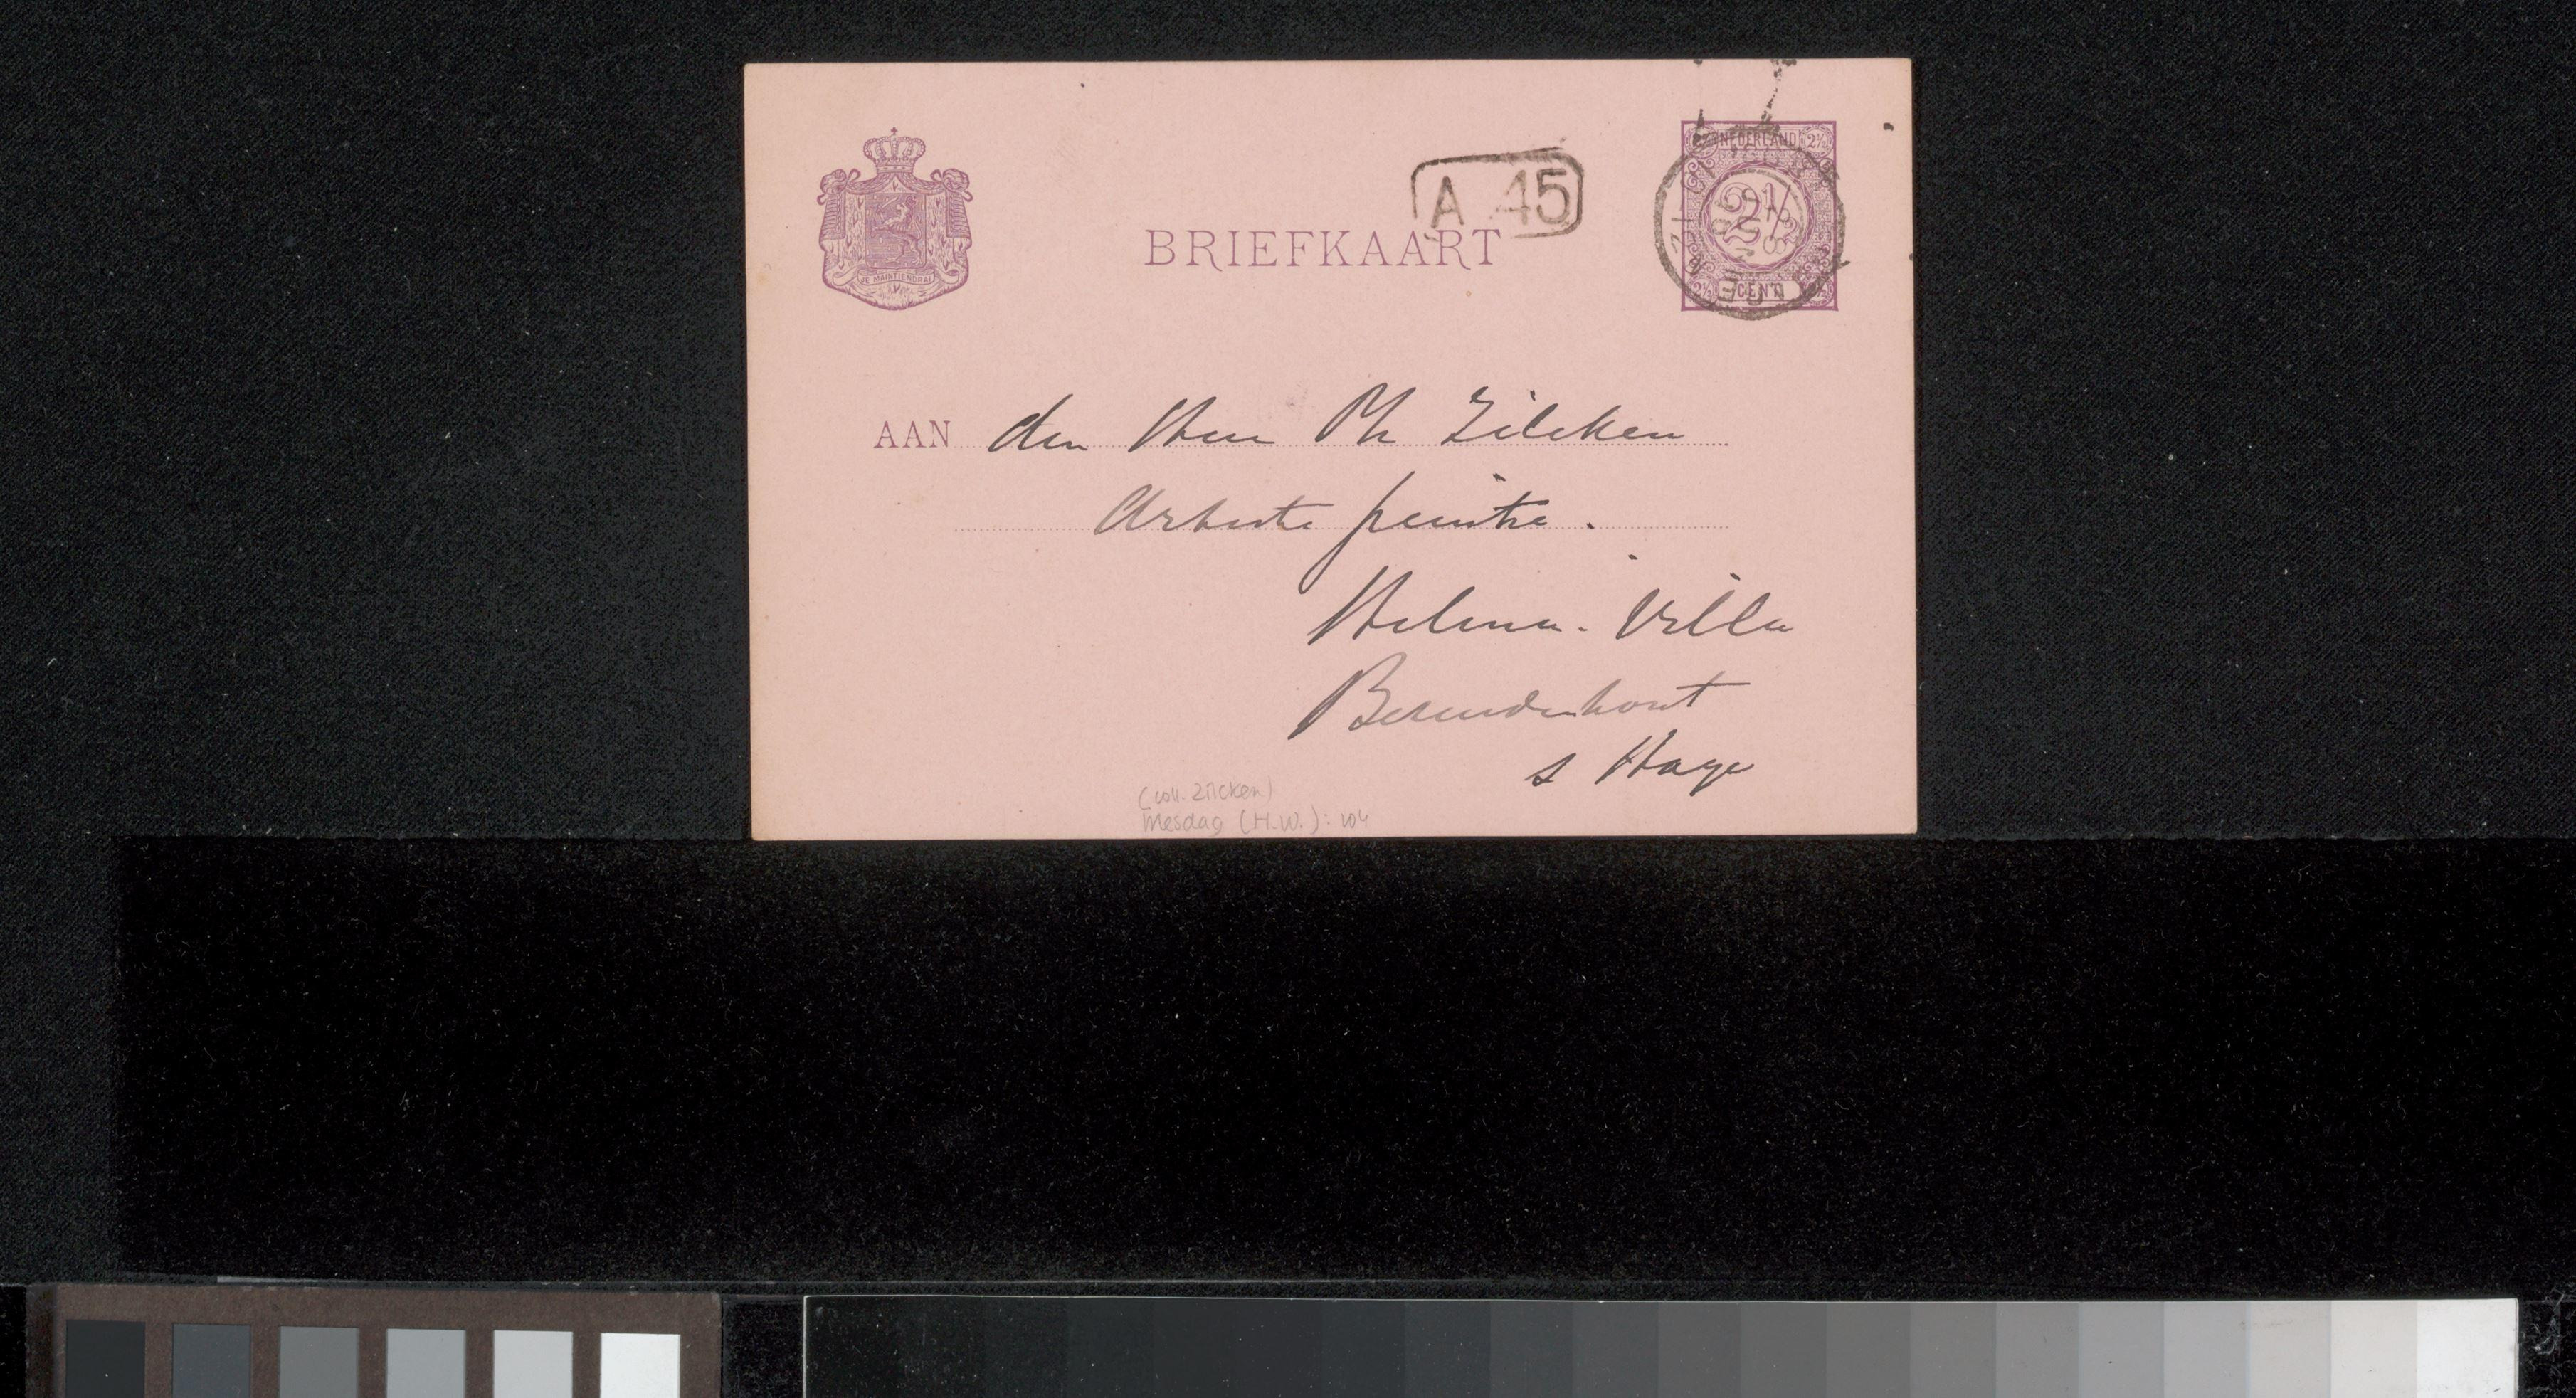 NEDERLAND 2½
2½
2½ CENT
JE MAINTIENDRAI
A 45
BRIEFKAART
AAN den Heer Ph Zilcken
Artiste peintre.
Helena-Villa
Bezuidenhout
s Hage
(coll. Zilcken)
Mesdag (H.W.): 104